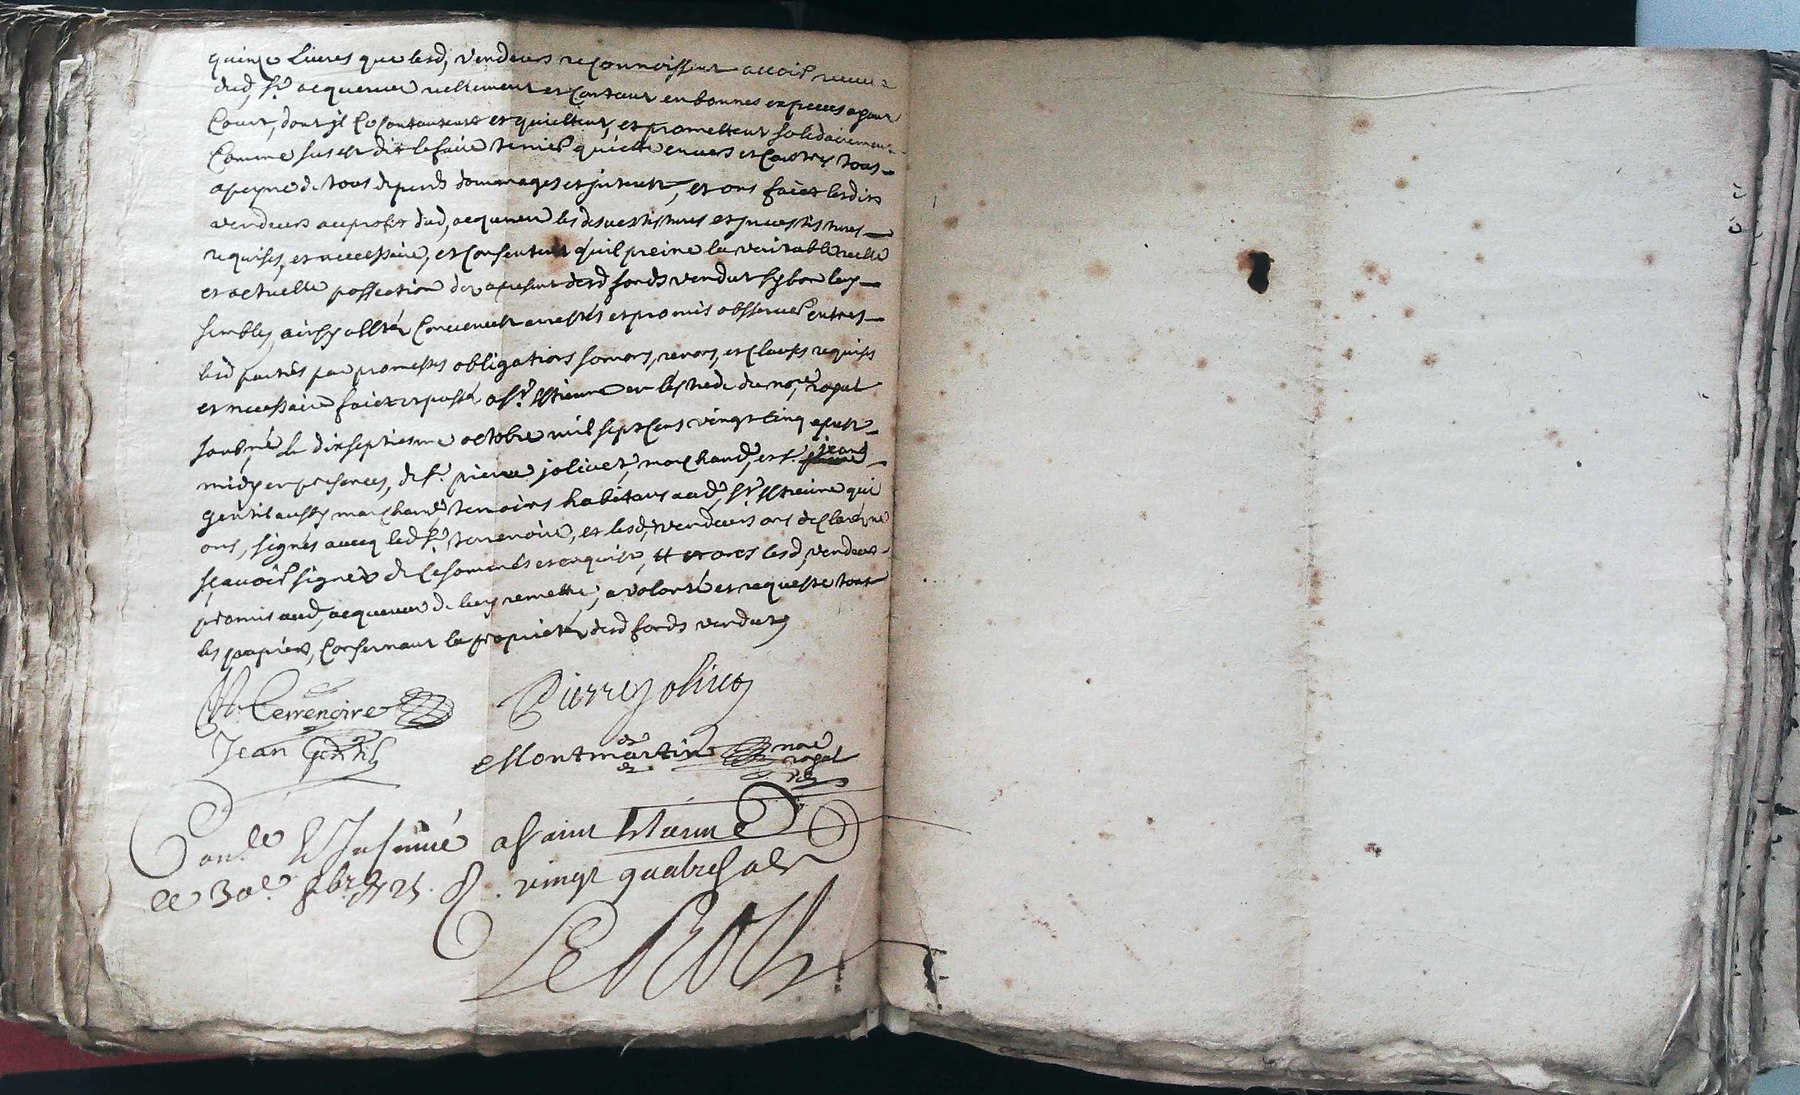 quinze livres que lesd, vendeurs reconnoissent avoir receu
dud, sr acquereur reellement et contant en bonnes especes ayant
Cour, dont jl Se contantent et quiettent, et promettent solidairement
Comme sus est dit le faire tenir quiette envers et contre tous
a peyne de tous depends dommages et jnterest, et ont faict lesdits
vendeurs au profit dud, acquereur les desvestitures et jnvestitures
requises, et necessaire, et Consentent qu'il preine la veritable reelle
et actuelle possection des apresent desd fonds vendut sy bon luy
semble, ainsy Convenut arrestés et promis observer entres
lesd parties par promesses obligations renons, et Clauses requises
et necessaire faict et passé a St Estienne en l'estude du nore royal
soubsné le dixseptiesme octobre mil sept Cens vingt Cinq apres
midy en presences, de sr pierre jolivet, marchand, et sr jean
gentil aussy marchand temoins habitans aud, St Estienne qui
ont, signés avecq led sr terrenoire, et lesd, vendeurs ont declaré ne
sçavoir signer de Ce sommés et enquis, et ont lesd, vendeurs
promis aud, acquereur de luy remettre, a volonté et requeste tout
les papiers, Consernant la proprietés desd fonds vendut
Terrenoire Pierre Jolivet
Jean Gentil Montmartin nore royal
Conlé & Insinué a Saint Etienne
le 30e. 8bre 1725. R. vingt quatre sols